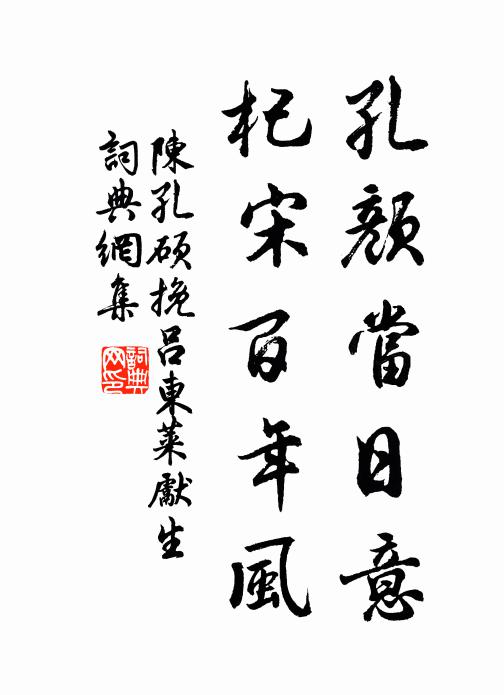 孔顏當日意
杞宋百年風
陳孔碩挽呂東萊獻生
詞典網集
詞典
網印